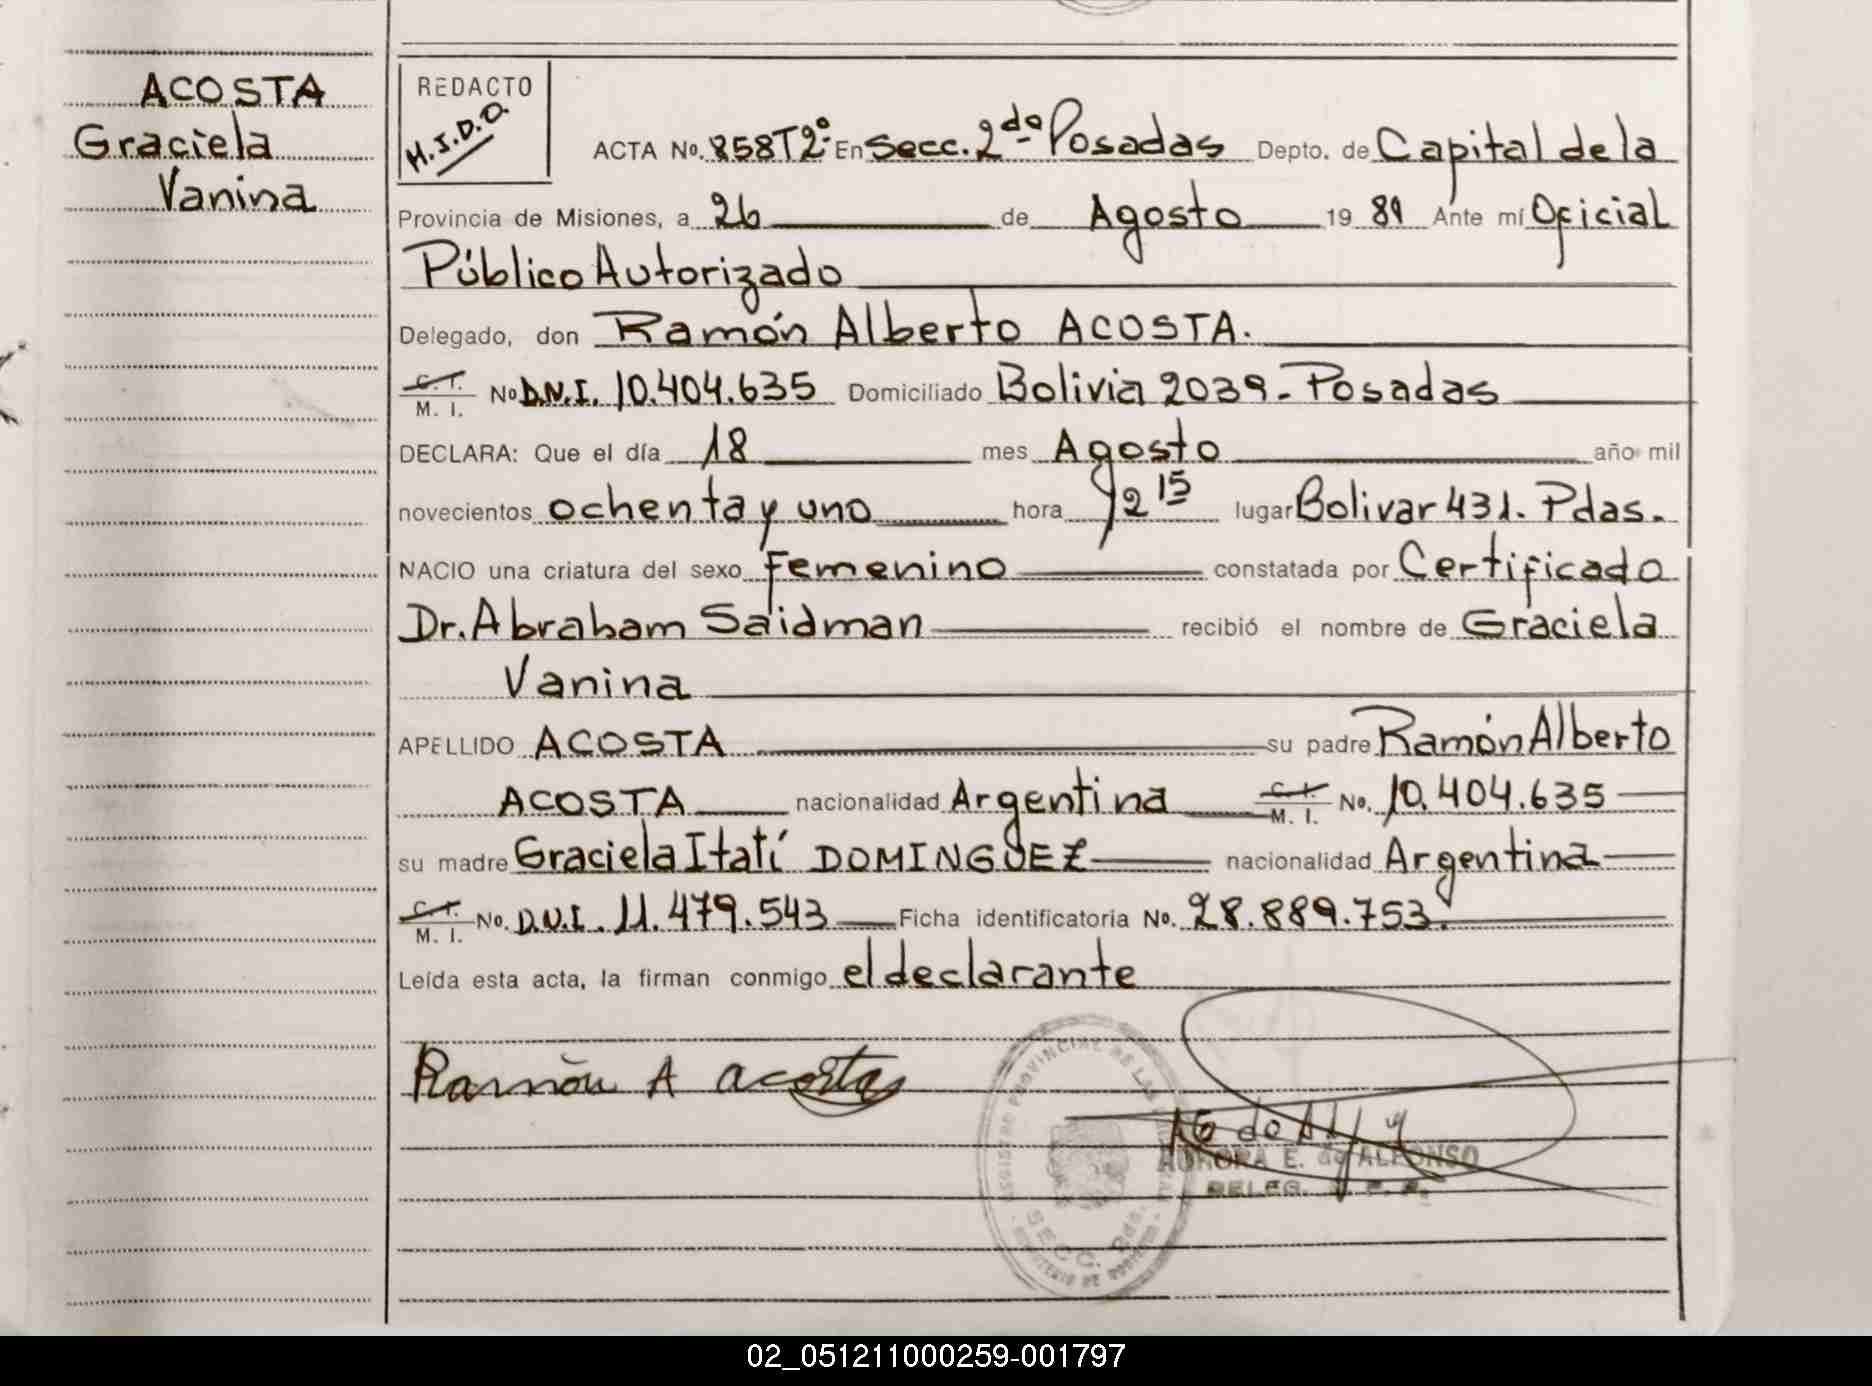 ACOSTA
Graciela
Vanina
REDACTO
M.I.D.O.
ACTA No. 858T2º En Secc. 2da Posadas Depto. de Capital de la
Provincia de Misiones, a 26 de Agosto 19 81 Ante mí Oficial
Público Autorizado
Delegado, don Ramón Alberto ACOSTA.
C.I. M. I. No D.N.I. 10.404.635 Domiciliado Bolivia 2039 - Posadas
DECLARA: Que el día 18 mes Agosto año mil
novecientos ochenta y uno hora 12 15 lugar Bolivar 431. Pdas.
NACIO una criatura del sexo Femenino constatada por Certificado
Dr. Abraham Saidman recibió el nombre de Graciela
Vanina
APELLIDO ACOSTA su padre Ramón Alberto
ACOSTA nacionalidad Argentina C.I. M. I. No. 10.404.635
su madre Graciela Itatí DOMINGUEZ nacionalidad Argentina
C.I. M. I. No. D.N.I. 11.479.543 Ficha identificatoria No. 28.889.753.
Leída esta acta, la firman conmigo el declarante
Ramón A acosta
AURORA E. de ALFONSO
DELEG.
SECC. 2da.
02_051211000259-001797